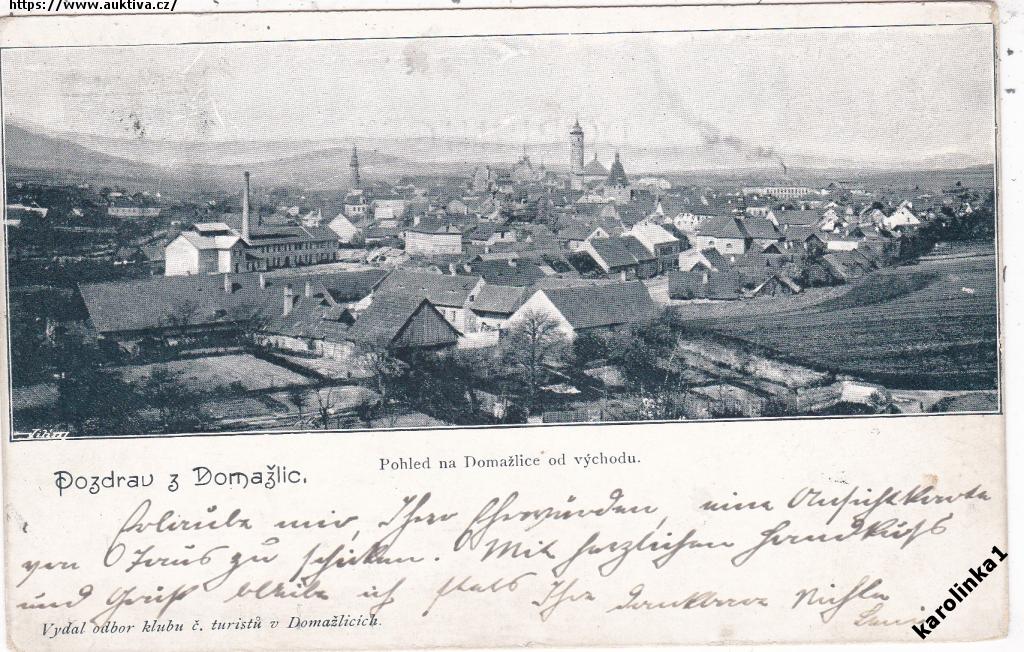 https://www.auktiva.cz/
Pohled na Domažlice od východu.
Pozdrav z Domažlic.
Erlaube mir, Ihro Ehrwürden, eine Ansichtskarte
von Taus zu schicken. Mit herzlichem Handkuß
und Gruß bleibe ich stets Ihre dankbare
Vydal odbor klubu č. turistů v Domažlicích.
karolinka1